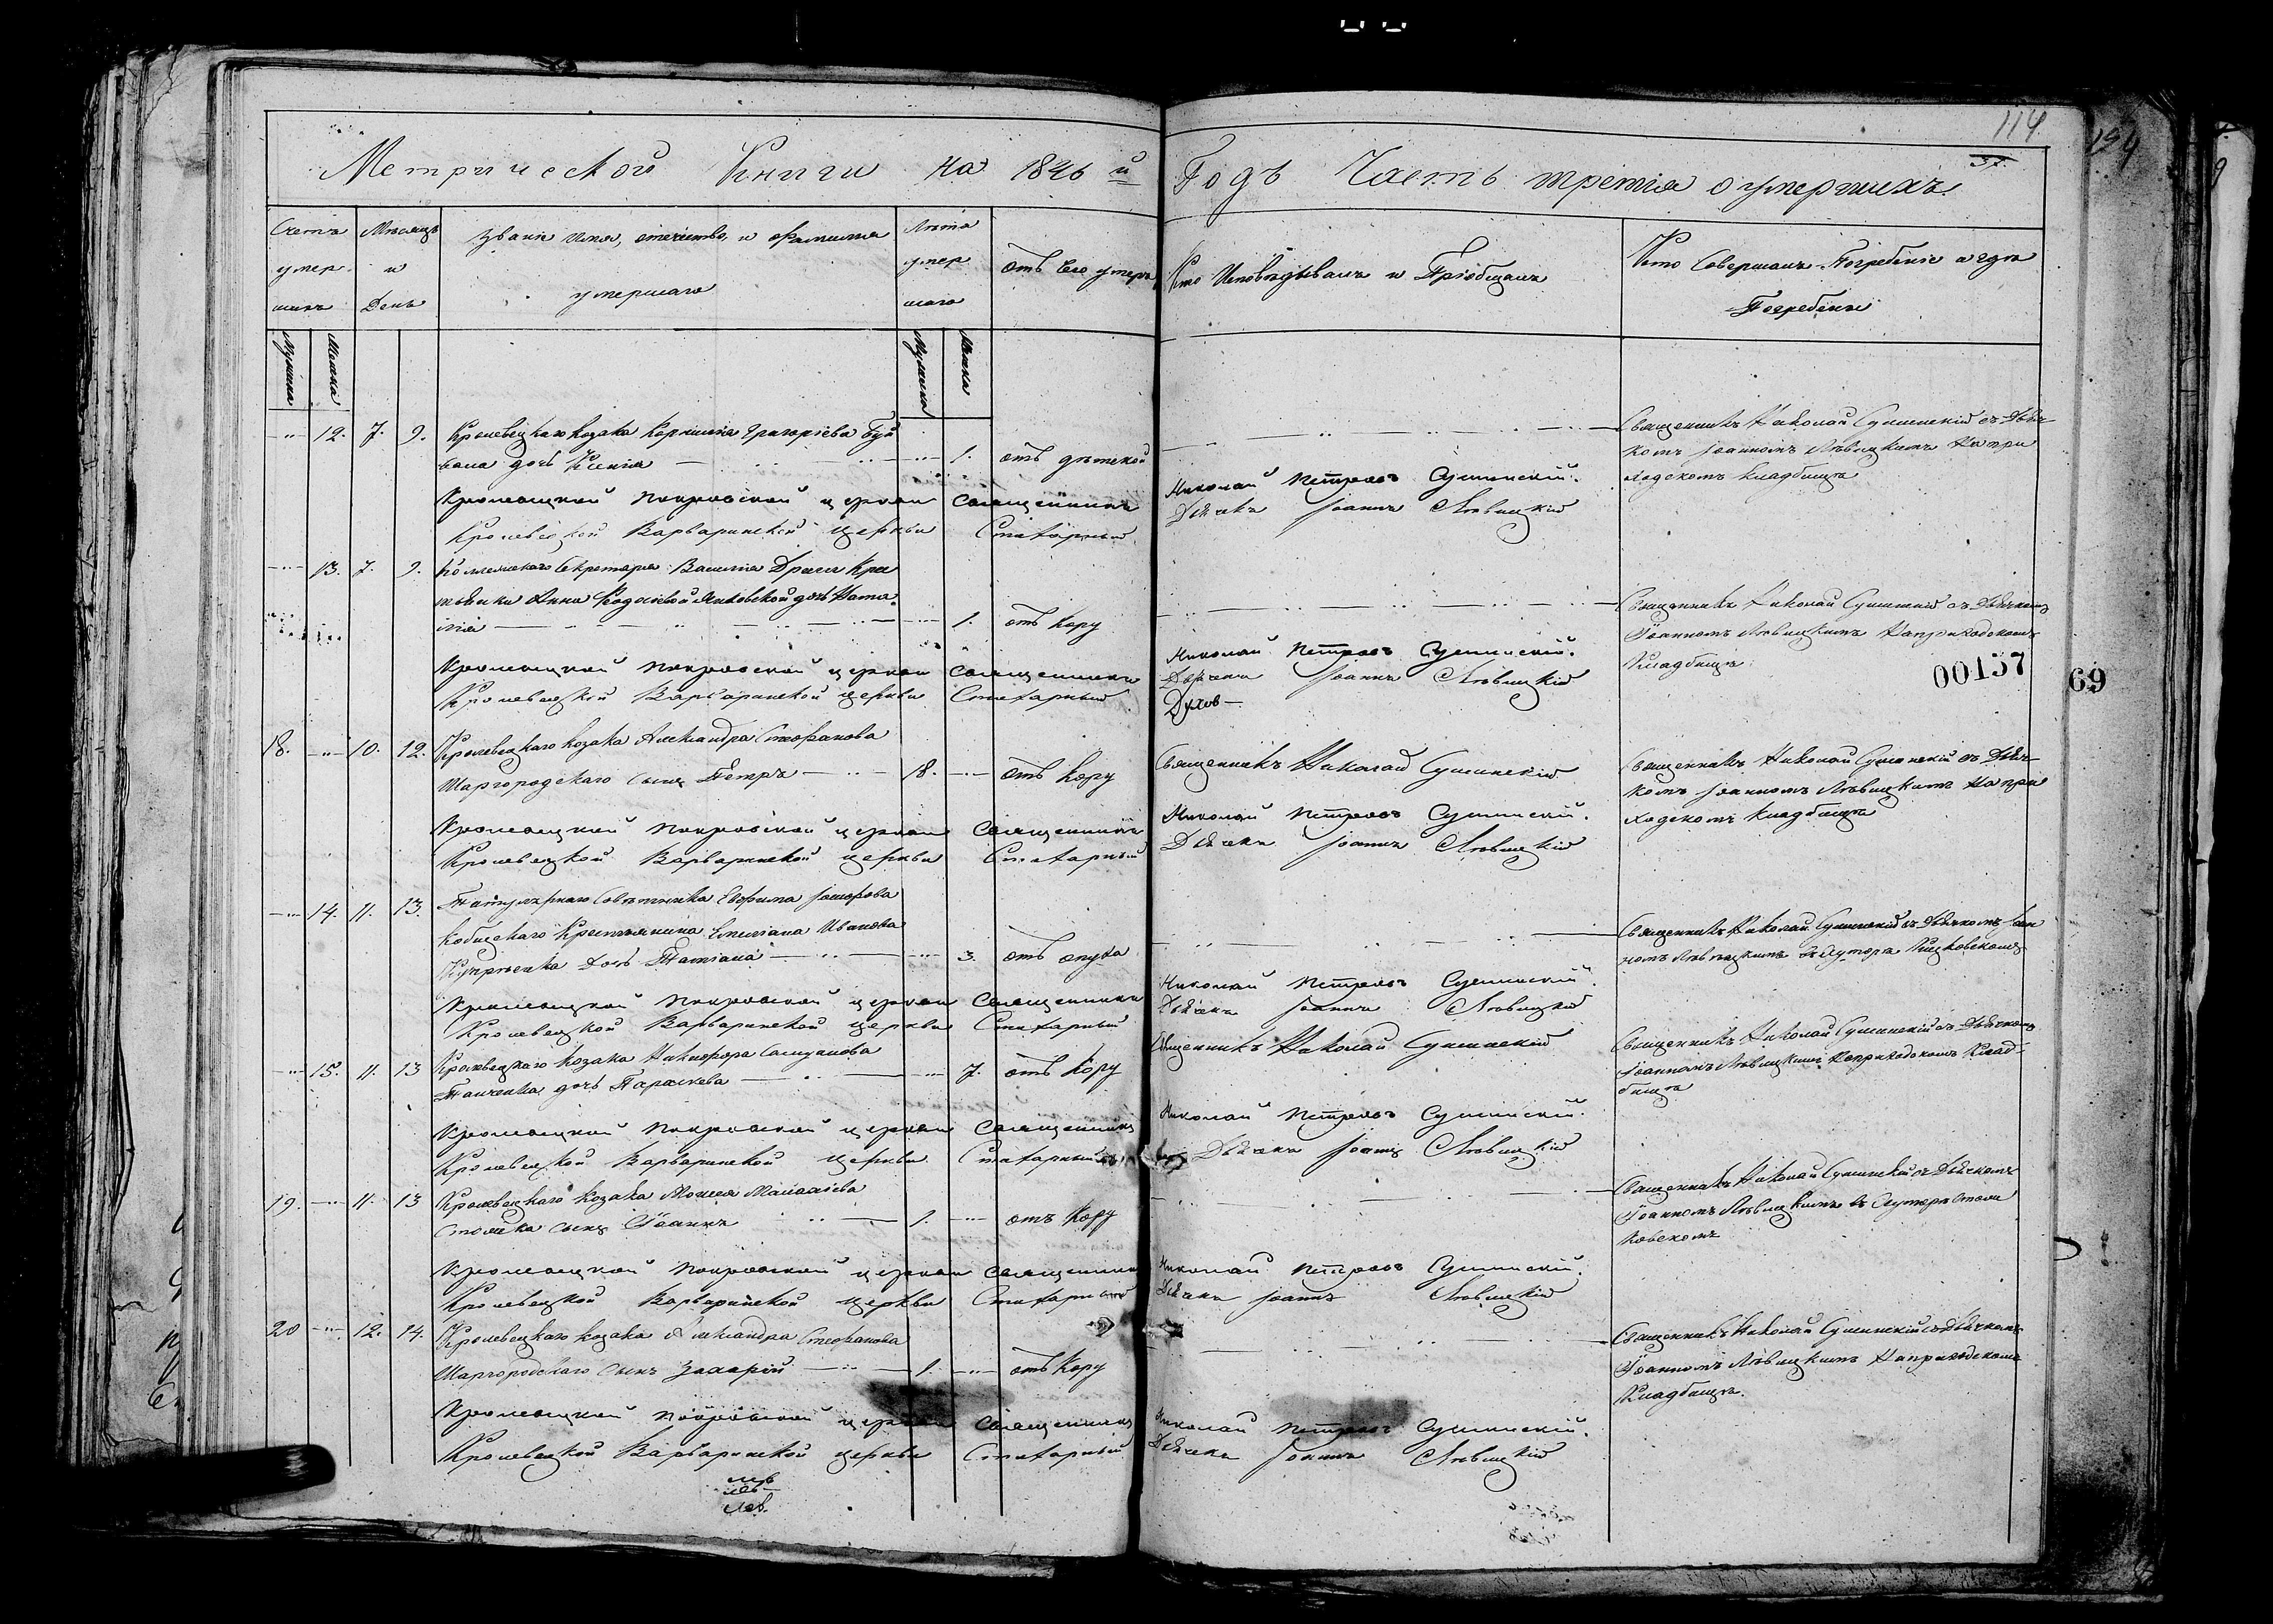 114
37.
Метрической Книги на 1846 й Годъ Часть третія о умершихъ.
Счетъ умер шихъ
Мѣсяцъ и День
Званіе имя, отчество, и Фамилія умершаго
Лѣта умер шаго
отъ Чего умеръ
Кто Исповѣдывалъ и Пріобщалъ
Кто Совершалъ Погребеніе и гдѣ Погребены
Мужеска
Женска
Мужеска
Женска
12. 7. 9. Кролевецкаго Козака Корнилія Григоріева
дочь Ксенія 1. отъ дѣтской
Священникъ Николай Сушинскій съ Дьяч
комъ Іоанномъ Лѣвицкимъ На при
ходскомъ Кладбищѣ
Кролевецкой Покровской церкви Священникъ Николай Петровъ Сушинскій.
Кролевецкой Варваринской Церкви Стихарный Дьячекъ Іоаннъ Лѣвицкій
13. 7. 9. Коллежскаго Секретаря Василія Кре
постьянки Анны дочь Ната
лія 1. отъ Кору
Священникъ Николай Сушинскій съ Дьячкомъ
Іоанномъ Лѣвицкимъ На приходскомъ
Кладбищѣ
00157
69
Кролевецкой Покровской церкви Священникъ Николай Петровъ Сушинскій.
Кролевецкой Варваринской церкви Стихарный Дьячекъ Іоаннъ Лѣвицкій
Духов
18. 10. 12. Кролевецкаго Козака Александра Стефанова
Шаргородскаго Сынъ Петръ 18. отъ Кору
Священникъ Николай Сушинскій
Священникъ Николай Сушинскій съ Дьяч
комъ Іоанномъ Лѣвицкимъ На при
ходскомъ Кладбищѣ
Кролевецкой Покровской церкви Священникъ Николай Петровъ Сушинскій.
Кролевецкой Варваринской церкви Стихарный Дьячекъ Іоаннъ Лѣвицкій
14. 11. 13. Титулярнаго Совѣтника Евфима
Крестьянина Емиліана Иванова
Дочь Татіана 3. отъ опуха
Священникъ Николай Сушинскій съ Дьячкомъ Іоан
номъ Лѣвицкимъ въ Хуторѣ
Кролевецкой Покровской церкви Священникъ Николай Петровъ Сушинскій.
Кролевецкой Варваринской церкви Стихарный Дьячекъ Іоаннъ Лѣвицкій
15. 11. 13 Кролевецкаго Козака Никифора
дочь Параскева 7. отъ Кору
Священникъ Николай Сушинскій
Священникъ Николай Сушинскій съ Дьячкомъ
Іоанномъ Лѣвицкимъ На приходскомъ Клад
бищѣ
Кролевецкой Покровской церкви Священникъ Николай Петровъ Сушинскій.
Кролевецкой Варваринской Церкви Стихарный Дьячекъ Іоаннъ Лѣвицкій
19. 11. 13 Кролевецкаго Козака Моисея
сынъ Іоаннъ 1. отъ Кору
Священникъ Николай Сушинскій съ Дьячкомъ
Іоанномъ Лѣвицкимъ въ Хуторѣ
Кролевецкой Покровской церкви Священникъ Николай Петровъ Сушинскій.
Кролевецкой Варваринской церкви Стихарный Дьячекъ Іоаннъ Лѣвицкій
20 12. 14. Кролевецкаго Козака Александра Стефанова
Шаргородскаго Сынъ Захарій 1. отъ Кору
Священникъ Николай Сушинскій съ Дьячкомъ
Іоанномъ Лѣвицкимъ На приходскомъ
Кладбищѣ.
Кролевецкой Покровской церкви Священникъ Николай Петровъ Сушинскій.
Кролевецкой Варваринской церкви Стихарный Дьячекъ Іоаннъ Лѣвицкій
лев